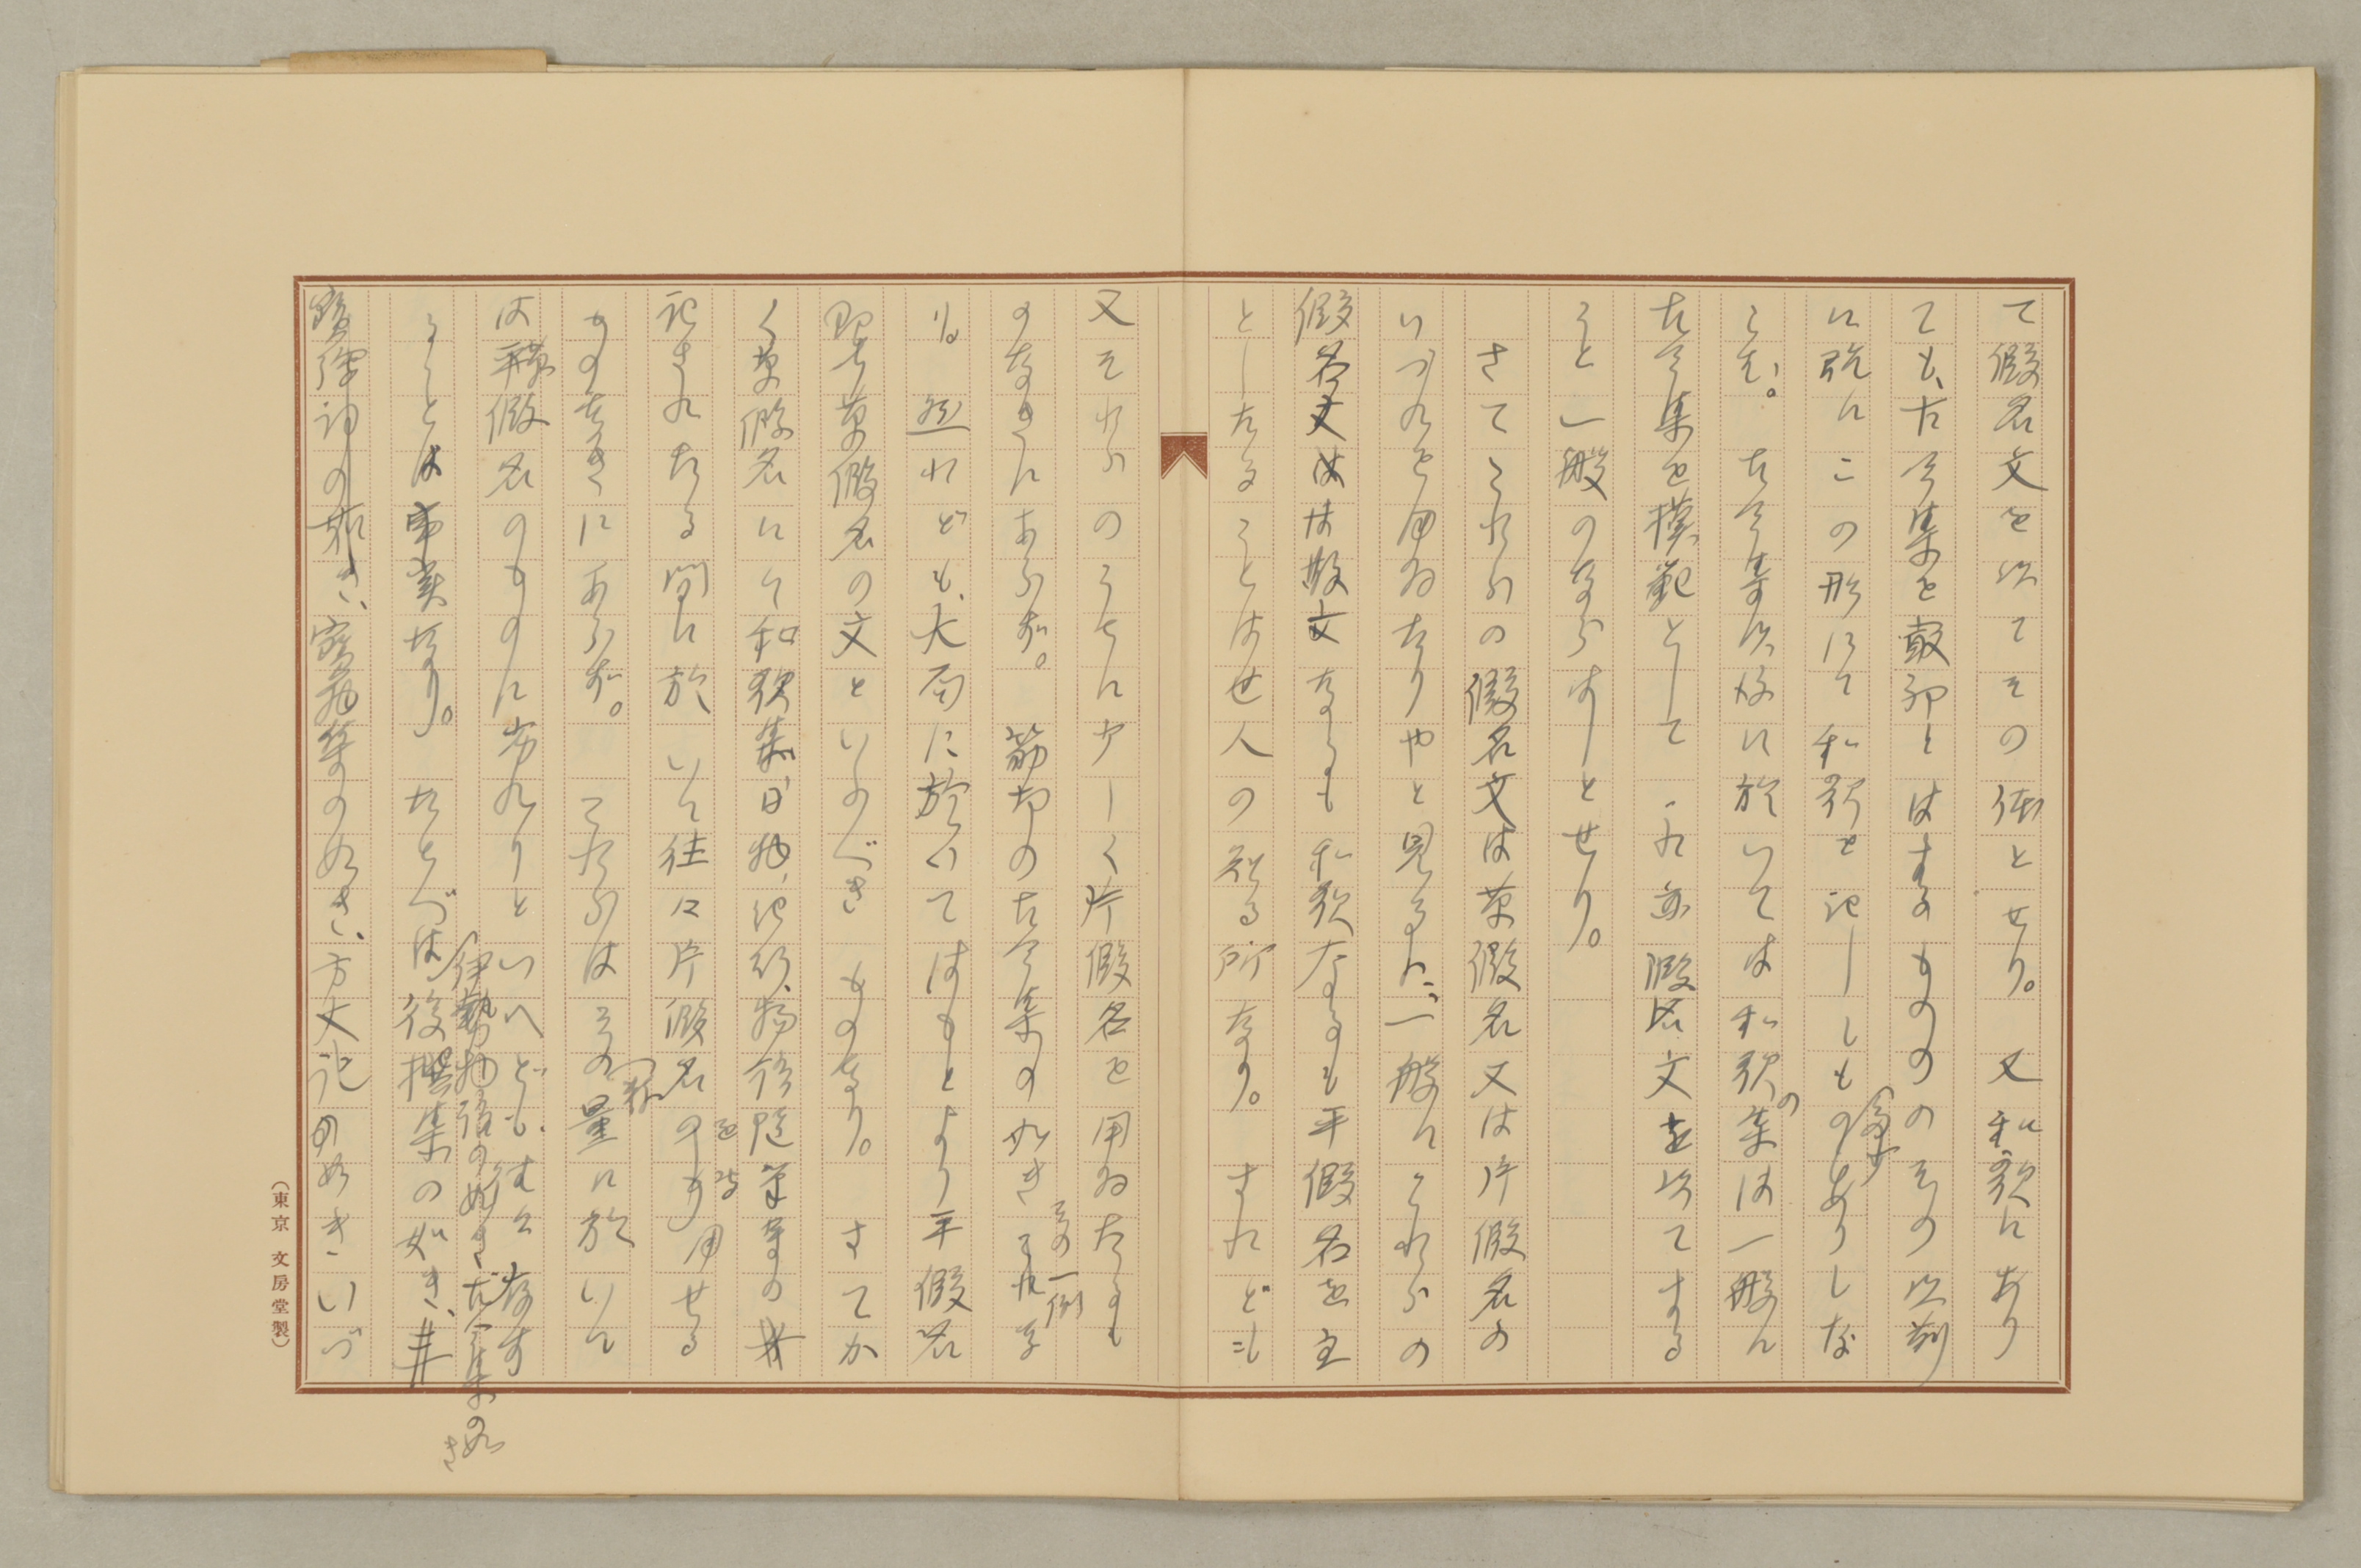 て假名文を以てその体とせり。又和歌にあり
ても、古今集を嚴卵とはするもののその以前
に既にこの形にて和歌を記ししもの多少ありしな
らむ。古今集以後に於いては和歌の集は一般に
古今集を模範として、亦假名文を以てする
こと一般のならはしとせり。
さてこれらの假名文は草假名又は片假名の
いづれを用ゐたりやと見るに、一般にこれらの
假名文は散文なるも和歌なるも平假名を主
としたることは世人の知る所なり。されども
又それらのうちに少しく片假名を用ゐたるも
のなきにあらず。筋切の古今集の如きその一例
なり 然れども、大局に於いてはもとより平假名
即ち草假名の文といふべきものなり。さてか
く草假名にて和歌集、日物、紀行、物語隨筆等の
記されたる間に於いて往々片假名のを特用せる
ものなきにあらず。これらはその量に於いて
は平草假名のものに劣れりといへども、存す
ることは事実なり。たとへば、後撰集の如き、
伊勢物語の如き古今集の如き
の如き、寳物集の如き、方丈記の如きいづ
（東京 文房堂製）